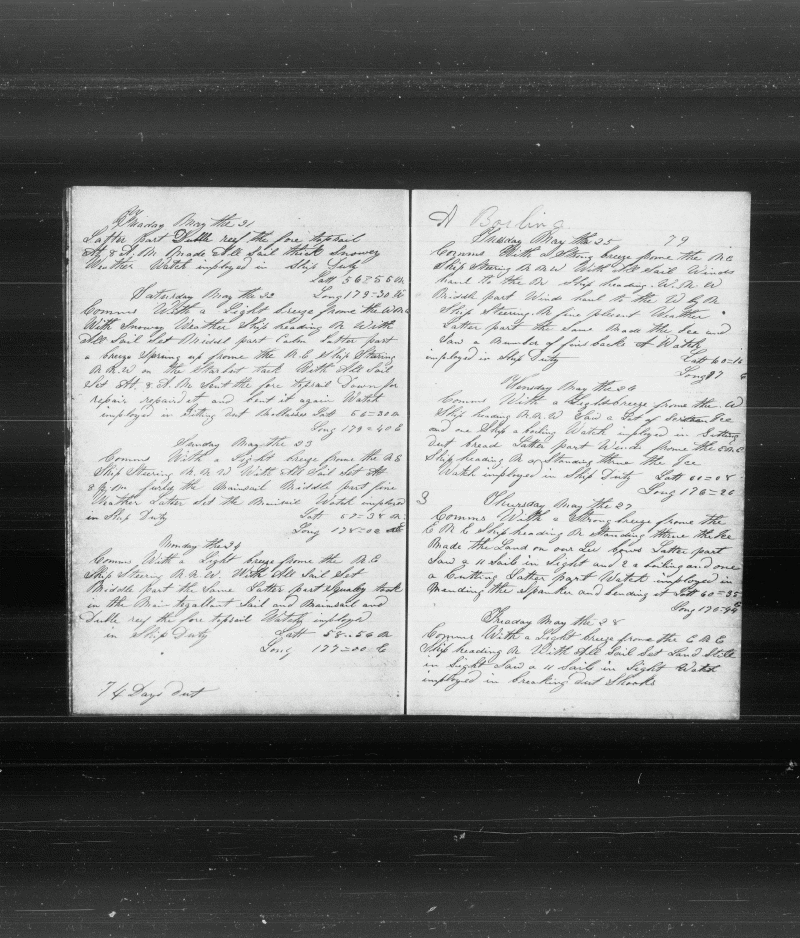 Friaday May the 21
Latter Part Duble reef the fore topsail
At 8 A. M. Made All Sail thick Snowey
Weather Watch imployed in Ship Duty
Latt 56=55 N
Long 179=30 W
Satarday May the 22
Comms With a Light breze frome the
With Snowey Weather Ship heading N With
All Sail Set Middel part Calm Latter part
a breze Spring up frome the N. E Ship Staring
N. N. W on the Starbot tack With All Sail
Set At 8 A. M Sent the fore topsail Down for
repair repaired it and bent it again Watch
imployed in Geting out Mollasses Latt 56=30 N
Long 179=40 E
Sunday May the 23
Comms With a Light breze frome the N E
Ship Steering N. N. W With All Sail Set At
8 P. M. furld the Mainsail Middle part fine
Weather Latter Set the Mainsail Watch imployed
in Ship Duty Latt 57=38 N
Long 178=02
Monday the 24
Comms With a Light breze frome the N. E
Ship Steering N. N. W. With All Sail Set
Middle part the Same Latter part Squaley took
in the Main tgallant Sail and Mainsail and
Duble reef the fore topsail Watch imployed
in Ship Duty Latt 58=56 N
Long 177=00 E
74 Days out
A Boiling
Tusday May the 25 79
Comms With a Strong breze frome the N. E
Ship Staring N N W With All Sail Winds
haul to the N Ship heading W. N W
Middle part Winds haul to the W by N
Ship Steering N fine plesent Weather
Latter part the Same Made the Ice and
Saw a Number of finbacks A Watch
imployed in Ship Duty Latt 60=16
Long 7 E
Wensday May the 26
Comms With a Light breze frome the W
Ship heading N. N. W Saw a Lot of Ice
and one Ship a boiling Watch imployed in Getting
Out bread Latter part Winds frome the E N E
Ship heading N a Standing thrue the Ice
Watch imployed in Ship Duty Latt 60=08
Long 176=26
3 Thursday May the 27
Comms With a Strong breze frome the
E N E Ship heading N Standing thrue the Ice
Made the Land on our Lee bows Latter part
Saw a 11 Sails in Sight and 2 a boiling and one
a Cutting Latter part Watch imployed in
Manding the Spanker and bending it Latt 60=35
Long 170=94
Freaday May the 28
Comms With a Light breze frome the E N E
Ship heading N With All Sail Set Land Still
in Sight Saw a 11 Sails in Sight Watch
imployed in breaking out Shooks